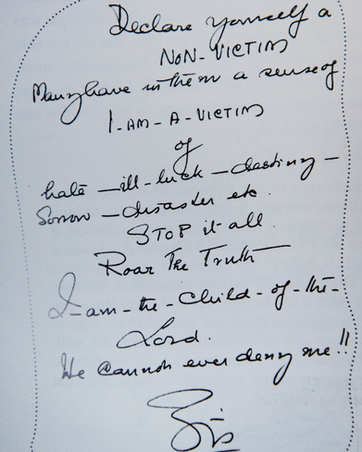 Declare yourself a
NON-VICTIM
Many have in them a sense of
I-AM-A-VICTIM
of
hate - ill-luck - destiny -
Sorrow - disaster etc.
STOP it all.
Roar The Truth
I-am-the-Child-of-the-
Lord.
He cannot ever deny me!!